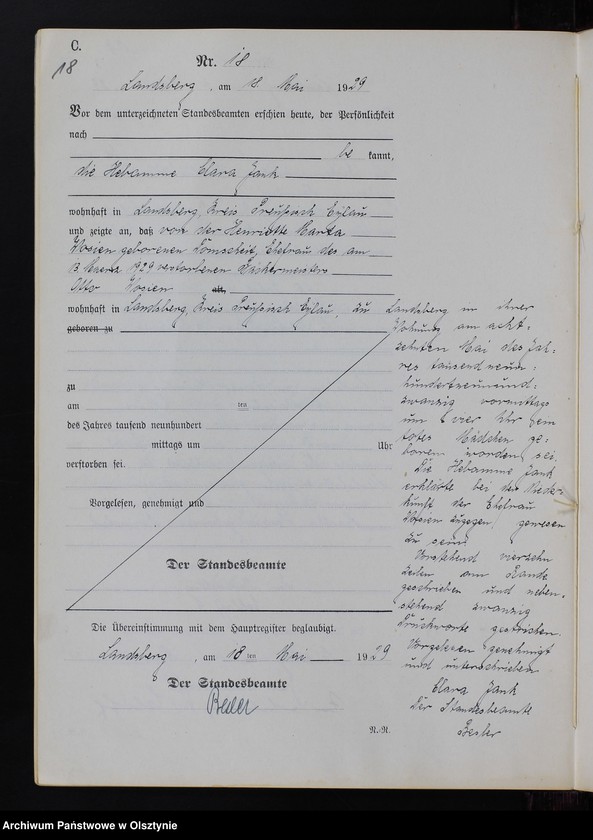 C.
18
Nr. 18
Landsberg, am 18. Mai 1929
Vor dem unterzeichneten Standesbeamten erschien heute, der Persönlichkeit
nach
be kannt,
die Hebamme Clara Jank
wohnhaft in Landsberg, Kreis Preußisch Eylau
und zeigte an, daß von der Henriette Marta
Wosien geborenen Domscheit, Ehefrau des am
verstorbenen
Otto Wosien alt,
wohnhaft in Landsberg, Kreis Preußisch Eylau, zu Landsberg in ihrer
geboren zu
Wohnung am acht-
zehnten Mai des Jah-
res tausend neun-
hundertneunund-
zwanzig vormittags
um vier Uhr ein
totes Mädchen ge-
boren worden sei.
Die Hebamme Jank
erklärte bei der Nieder-
kunft der Ehefrau
Wosien zugegen gewesen
zu sein.
Vorstehend vierzehn
Zeilen am Rande
geschrieben und neben-
stehend zwanzig
Druckworte gestrichen.
Vorgelesen genehmigt
und unterschrieben
Clara Jank
Der Standesbeamte
Besler
zu
am ten
des Jahres tausend neunhundert
mittags um Uhr
verstorben sei.
Vorgelesen, genehmigt und
Der Standesbeamte
Die Übereinstimmung mit dem Hauptregister beglaubigt.
Landsberg, am 18 ten Mai 1929
Der Standesbeamte
Besler
Archiwum Państwowe w Olsztynie